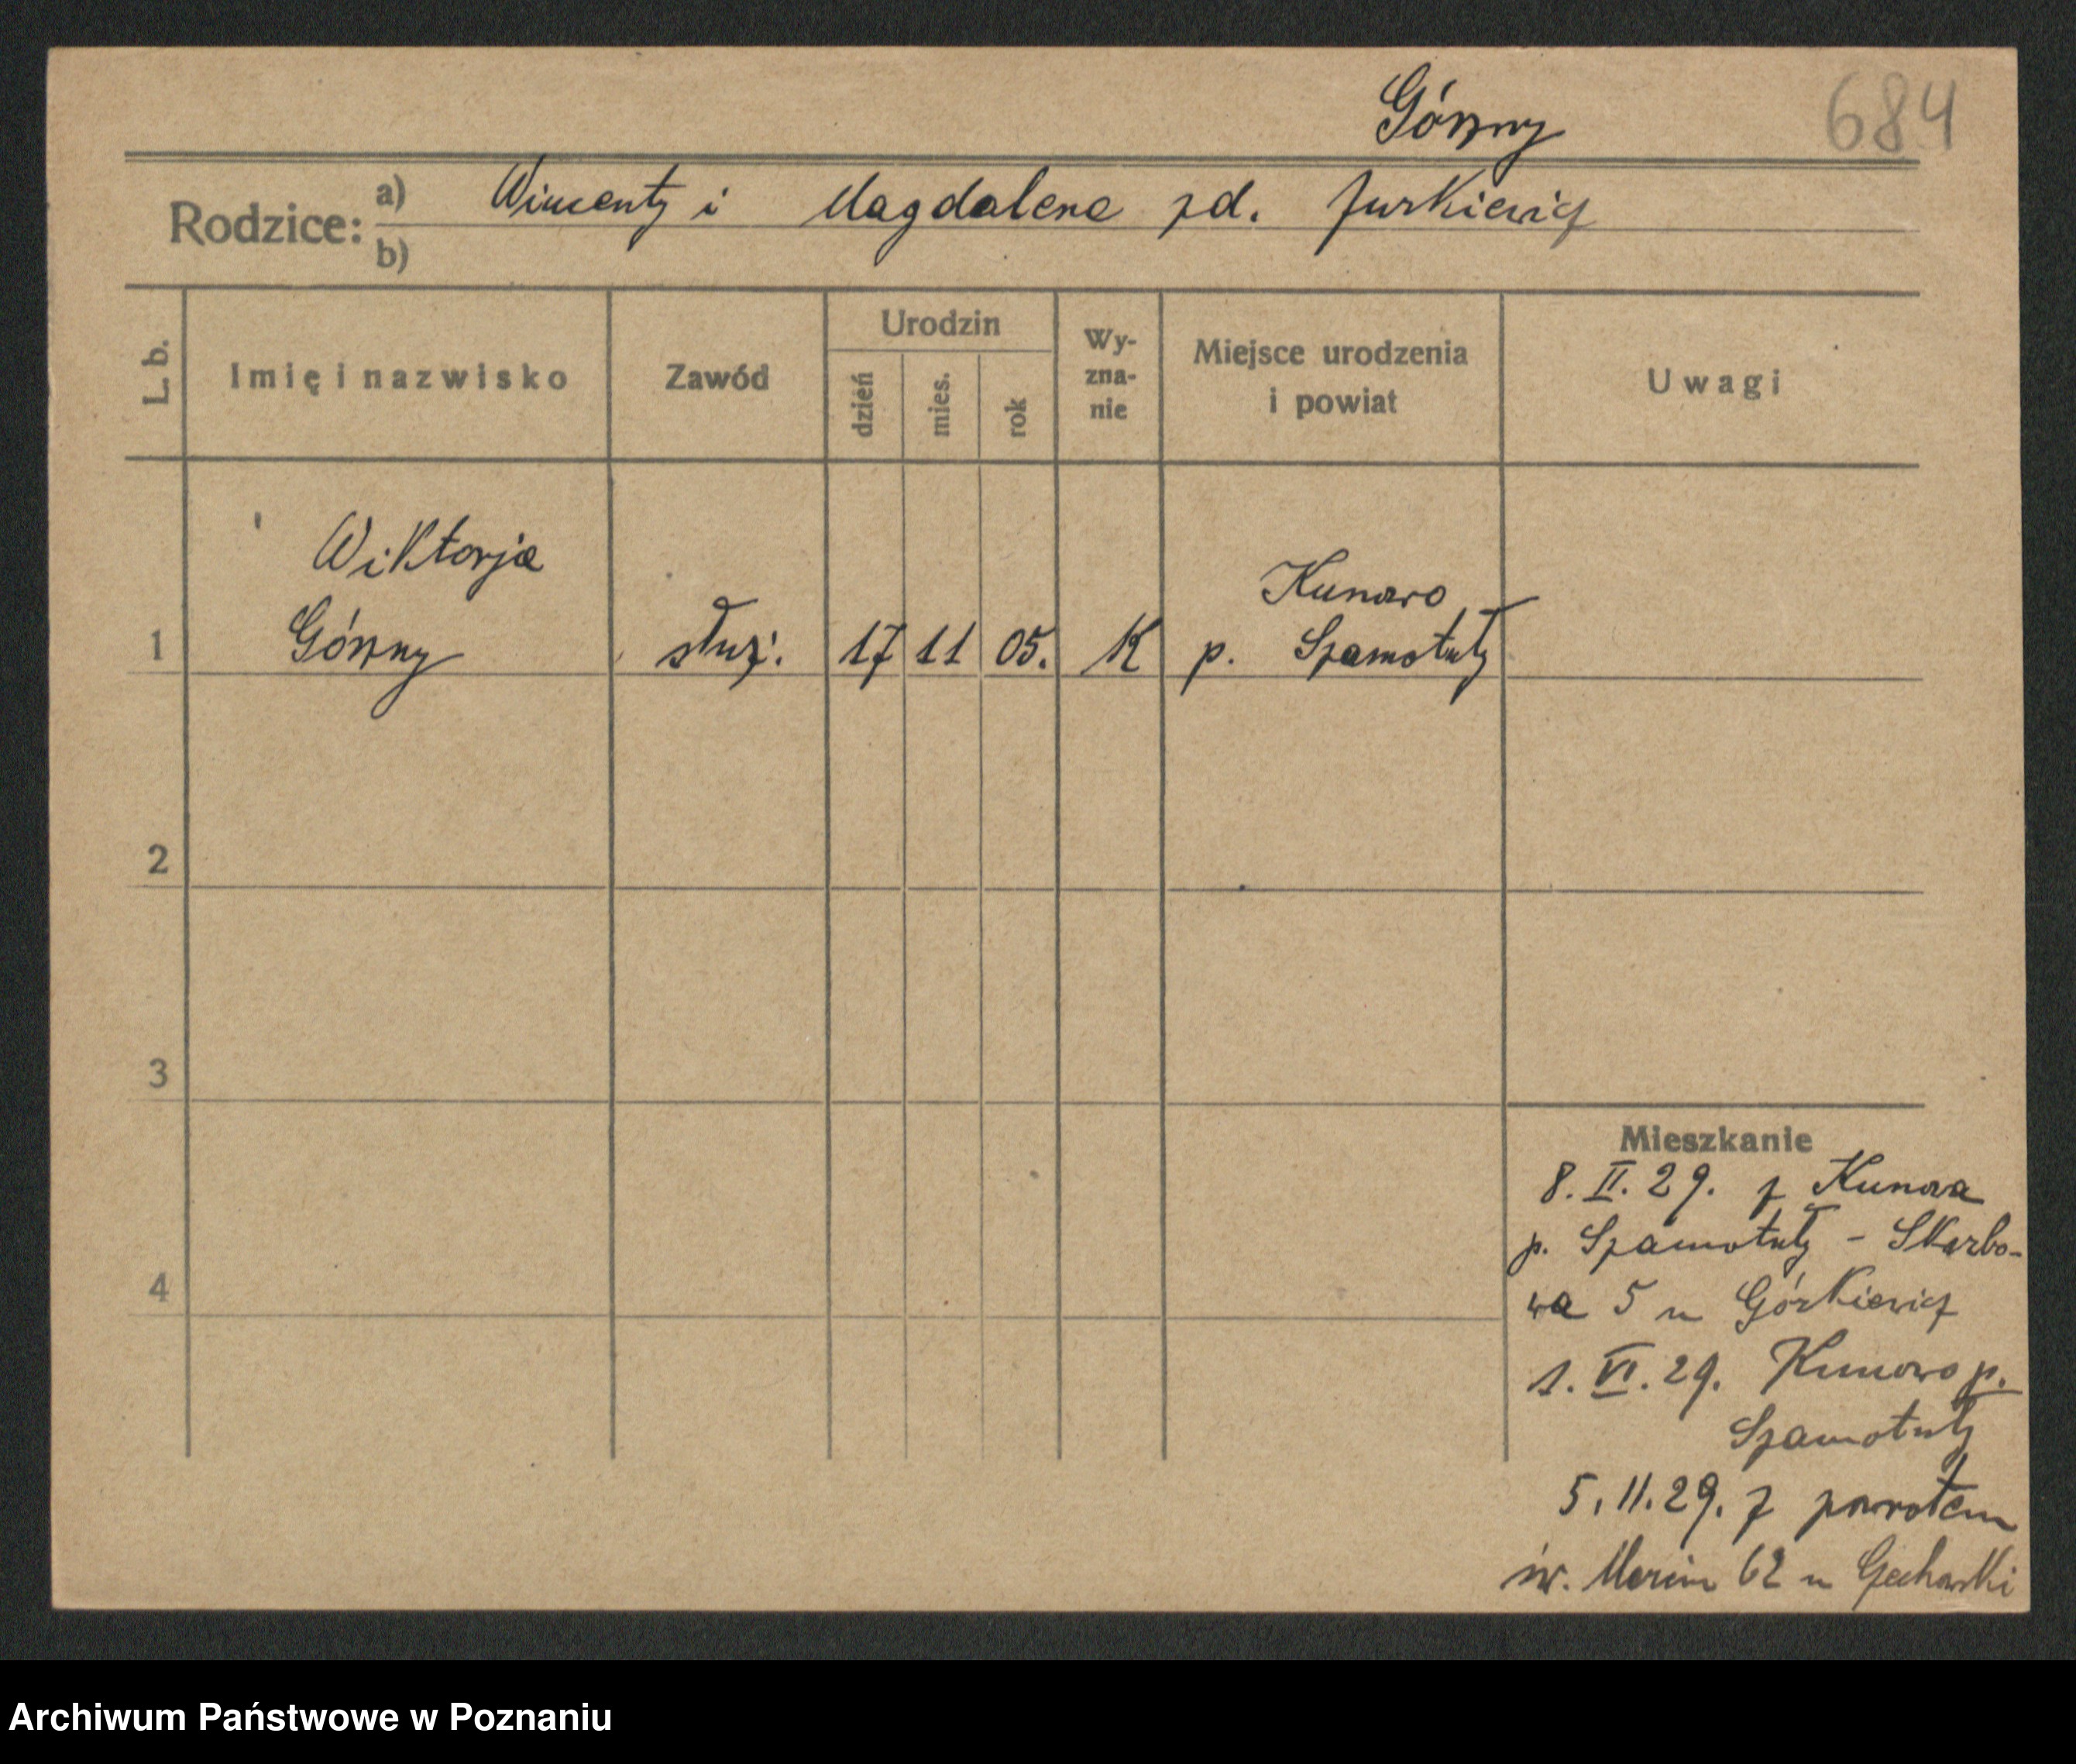 Górny
684
Rodzice: a) Wincenty i Magdalena zd. Jurkiewicz
b)
L. b. Imię i nazwisko Zawód Urodzin dzień mies. rok Wy-zna-nie Miejsce urodzenia i powiat Uwagi
Wiktorja Kunowo
1 Górny służ. 17 11 05. K p. Szamotuły
2
3
4
Mieszkanie
8. II. 29. z Kunowa
p. Szamotuły - Skarbo-
wa 5 u Górkiewicz
1. VI. 29. Kunowo p.
Szamotuły
5. 11. 29. z powrotem
św. Marcin 62 u
Archiwum Państwowe w Poznaniu